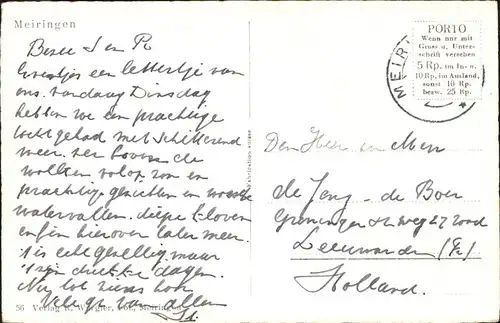 Meiringen
Beste J en P.
een lettertje van
ons. Vandaag Dinsdag
hebben we een prachtige
tocht gehad met schitterend
weer. Zer boven de
wolken, volop zon en
prachtige gezichten en woeste
watervallen, diepe kloven
enfin hierover later meer.
't is echt gezellig maar
't zijn drukke dagen.
Nu tot ziens hoor
Vele gr. van allen
56 Verlag Phot. Meiringen
PORTO
Wenn nur mit
Gruss u. Unter-
schrift versehen
5 Rp. im In- u.
10 Rp. im Ausland,
sonst 10 Rp.
bezw. 25 Rp.
MEIRI
Den Heer en Mevr
de Jong - de Boer
Groninger straatweg 27 rood
Leeuwarden (Fr.)
Holland.